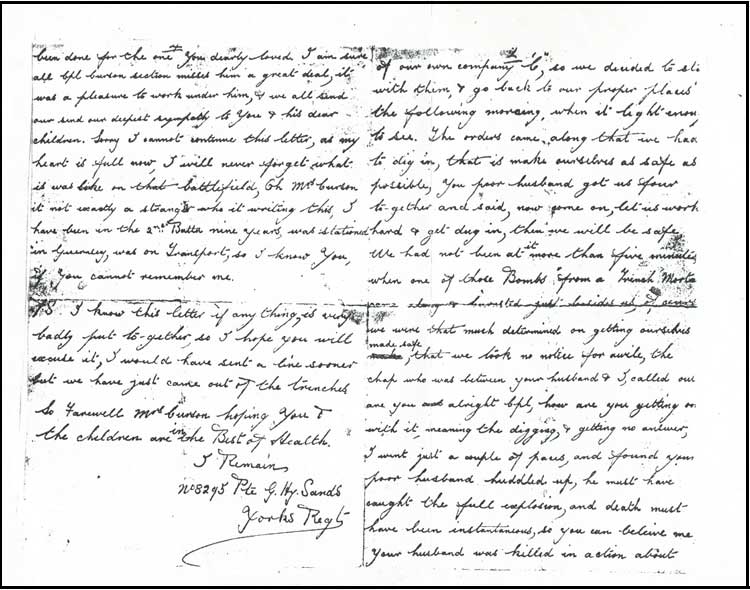 been done for the one You dearly loved. I am sure
all Cpl Curson section misses him a great deal, it
was a pleasure to work under him, & we all send
our send our deepest sympath to You & his dear
children. Sorry I cannot continue this letter, as my
heart is full now, I will never forget what
is was like on that battlefield, Oh Mrs Curson
it not exactly a stranger who it writing this, I
have been in the 2nd Batta nine years, was stationed
in Guernsey, was on Transport, so I know You,
if You cannot remember me.
P.S. I know this letter if any thing, is very
badly put to-gether, so I hope you will
excuse it, I would have sent a line sooner
but we have just came out of the trenches
So Farewell Mrs Curson hoping You &
the children are in the Best of Health.
I Remain
No 8295 Pte G. Hy. Sands
Yorks Regt
of our own company "C", so we decided to
with them & go back to our proper places
the following morning, when it light
to see. The orders came along that we had
to dig in, that is make ourselves as safe as
possible, You poor husband got us four
to-gether and said, now come on, let us work
hard & get dug in, then we will be safe
We had not been at it more than five minutes
when one of those Bombs from a Trench
along & bursted just besides us,
we were that much determined on getting ourselves
made safe, that we took no notice for awile, the
chap who was between your husband & I, called out
are you alright Cpl, how are you getting on
with it, meaning the digging, & getting no answer,
I went just a couple of paces, and found your
poor husband huddled up, he must have
caught the full explosion, and death must
have been instantaneous, so you can beleive me
Your husband was killed in action about